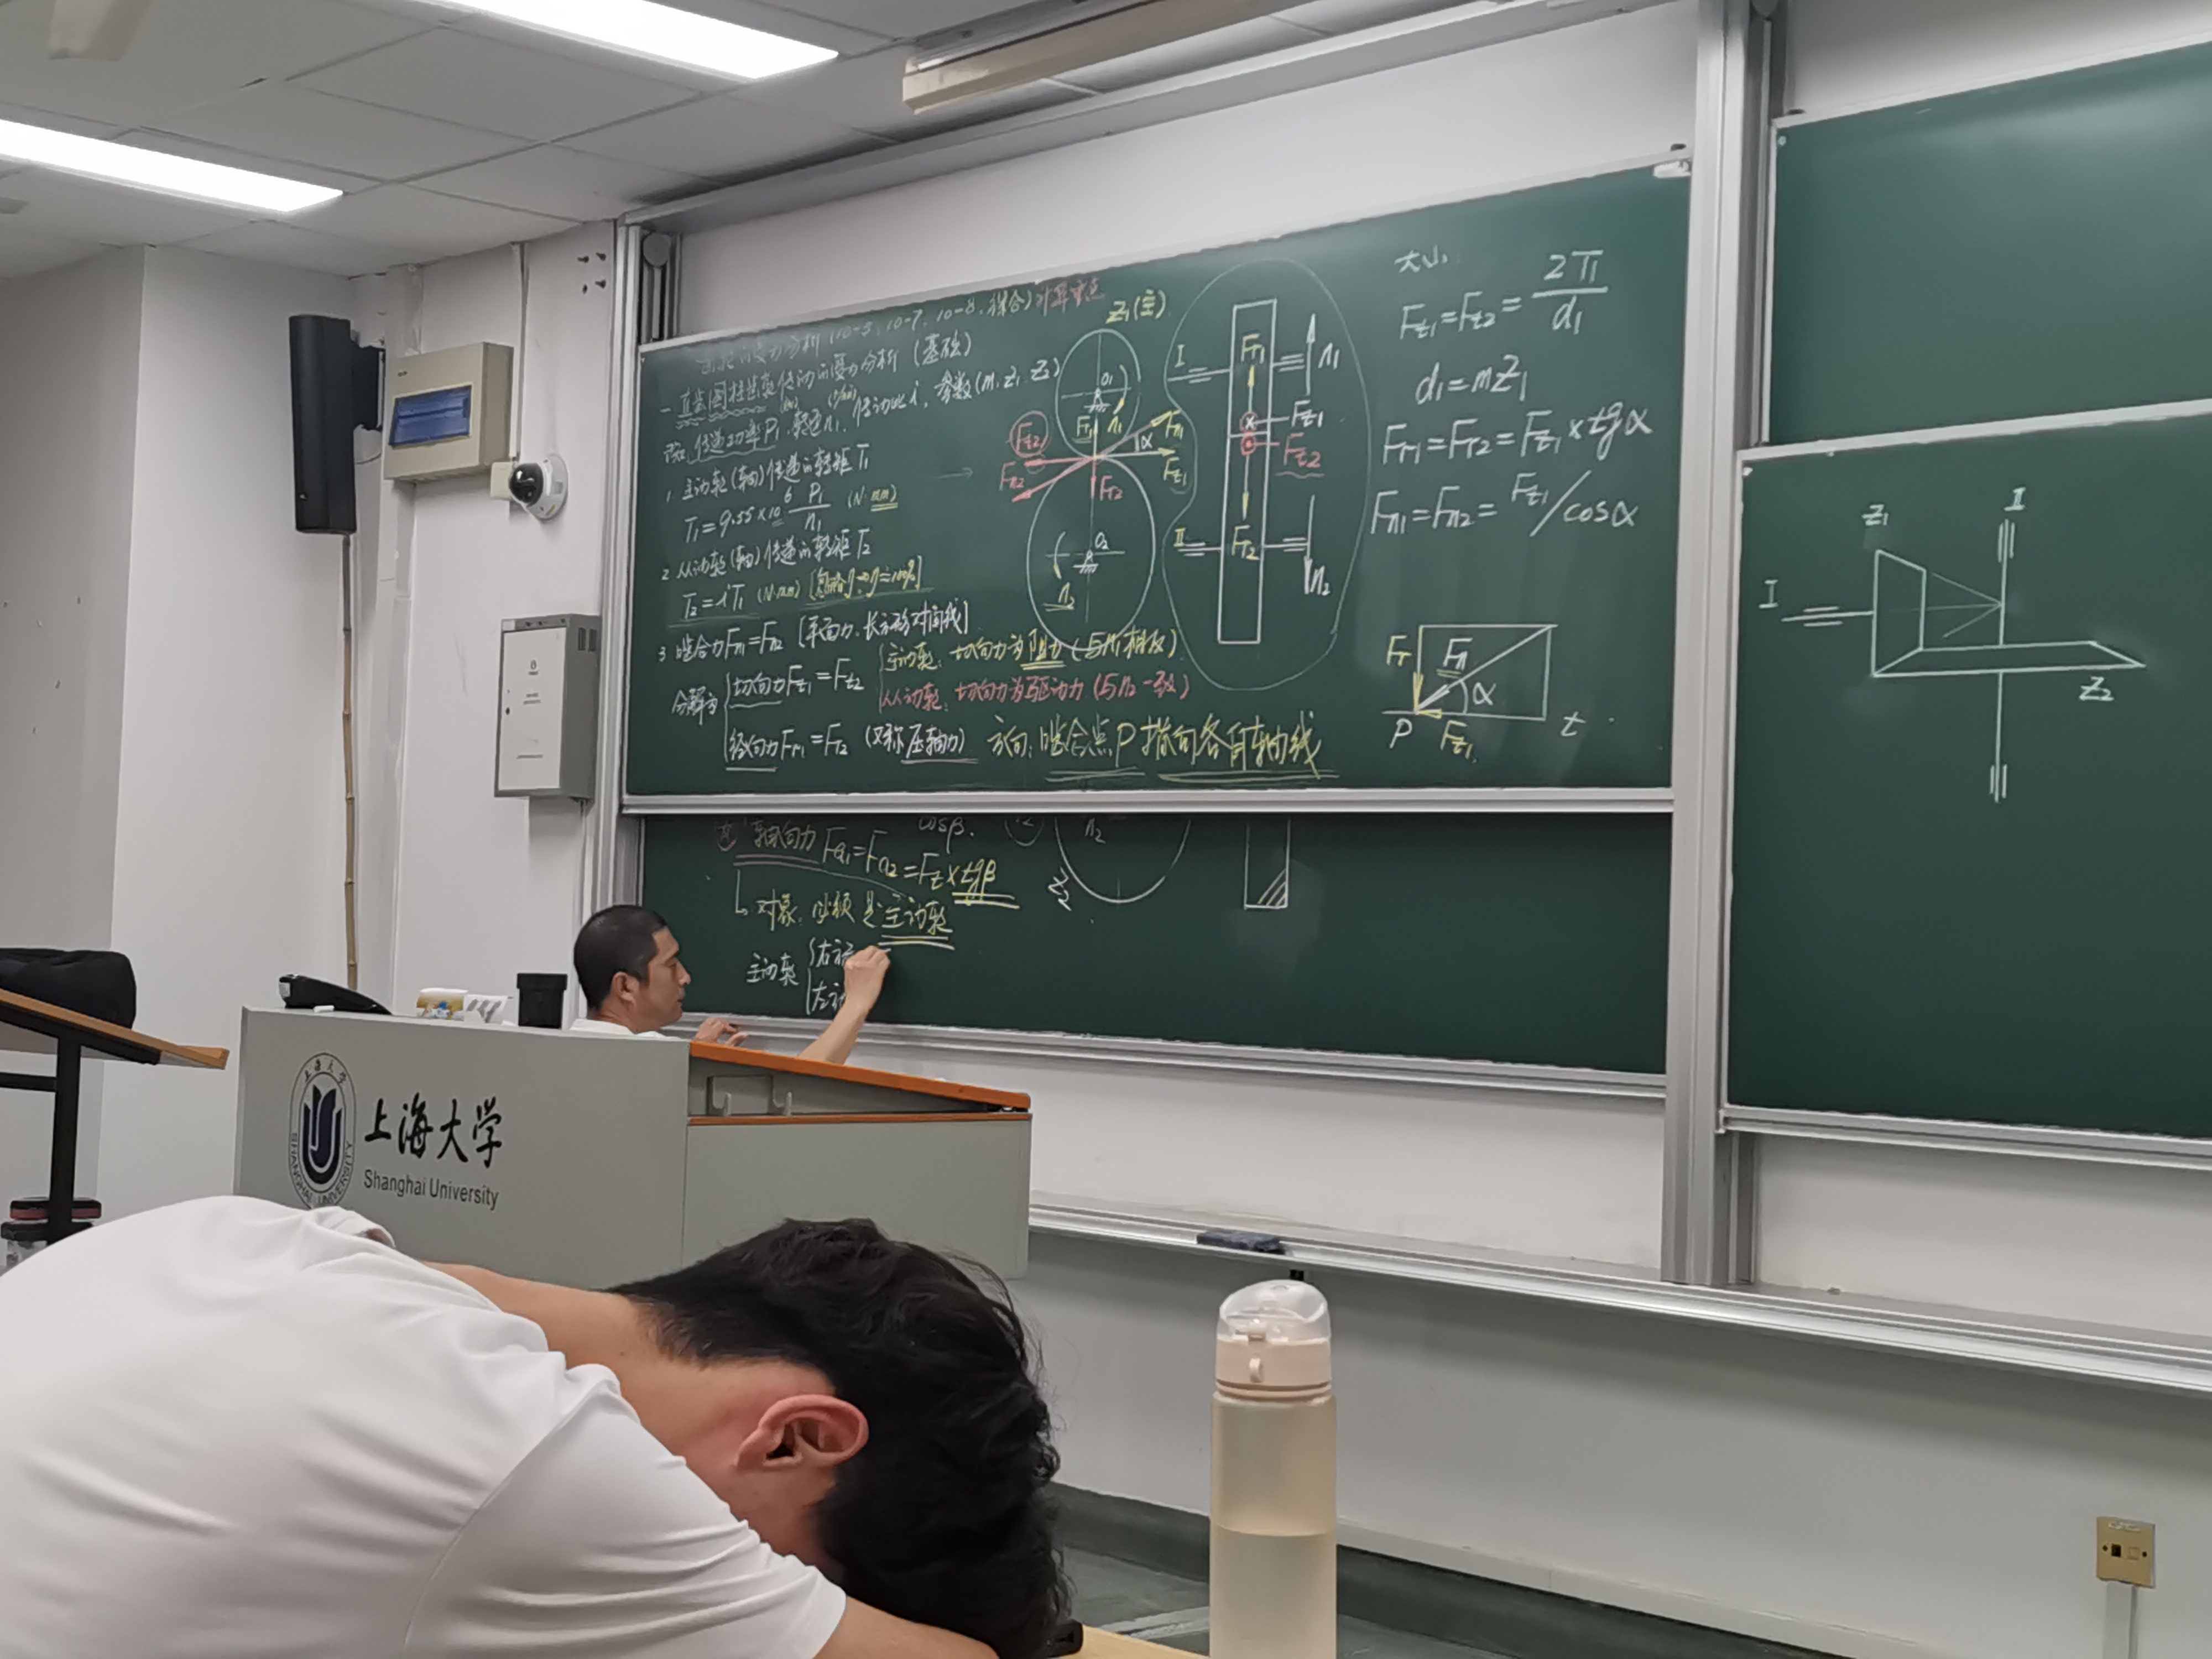 受力分析 (10-5, 10-7, 10-8, 综合) 计算重点
一 直齿圆柱齿轮传动的受力分析 (基础)
已知: 传递功率P₁, 转速n₁, 传动比i, 参数(m, Z₁, Z₂)
1 主动轮(轴)传递的转矩T₁
T₁=9.55×10⁶ P₁/n₁ (N·mm)
2 从动轮(轴)传递的转矩T₂
T₂=iT₁ (N·mm)
3 啮合力Fn₁=Fn₂ [平面力、长方形对角线]
分解为
切向力Ft₁=Ft₂
主动轮: 切向力为阻力 (与n₁相反)
从动轮: 切向力为驱动力 (与n₂一致)
径向力Fr₁=Fr₂ (又称压轴力) 方向: 啮合点P指向各自轴线
Z₁(主)
O₁
n₁
Fr₁
Fn₁
α
Ft₁
Ft₂
Fn₂
Fr₂
O₂
n₂
I
Fr₁
n₁
Ft₁
Ft₂
II
Fr₂
n₂
大小:
Ft₁=Ft₂=2T₁/d₁
d₁=mZ₁
Fr₁=Fr₂=Ft₁×tgα
Fn₁=Fn₂=Ft₁/cosα
Fr
Fn
α
P
Ft₁
t
cosβ
轴向力Fa₁=Fa₂=Ft×tgβ
对象: 必须是主动轮
主动轮
右
左
n₂
Z₂
Z₁
II
I
Z₂
上海大学
SHANGHAI UNIVERSITY
上海大学
Shanghai University